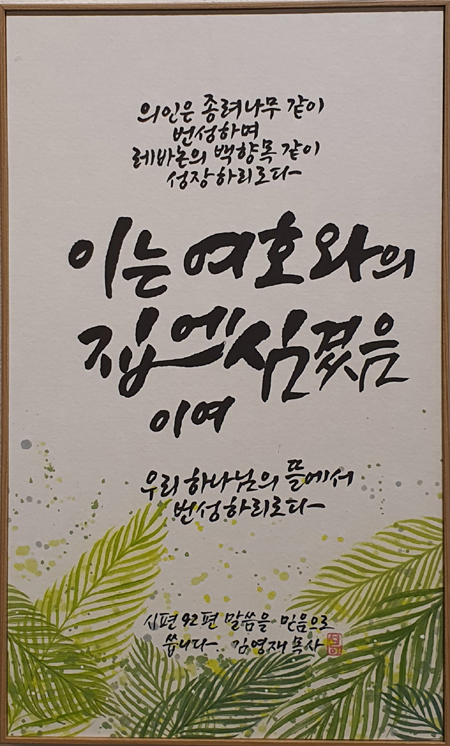 의인은 종려나무 같이
번성하며
레바논의 백향목 같이
성장하리로다
이는 여호와의
집에 심겼음
이여
우리 하나님의 뜰에서
번성하리로다
시편 92편 말씀을 믿음으로
씁니다 김영재 목사